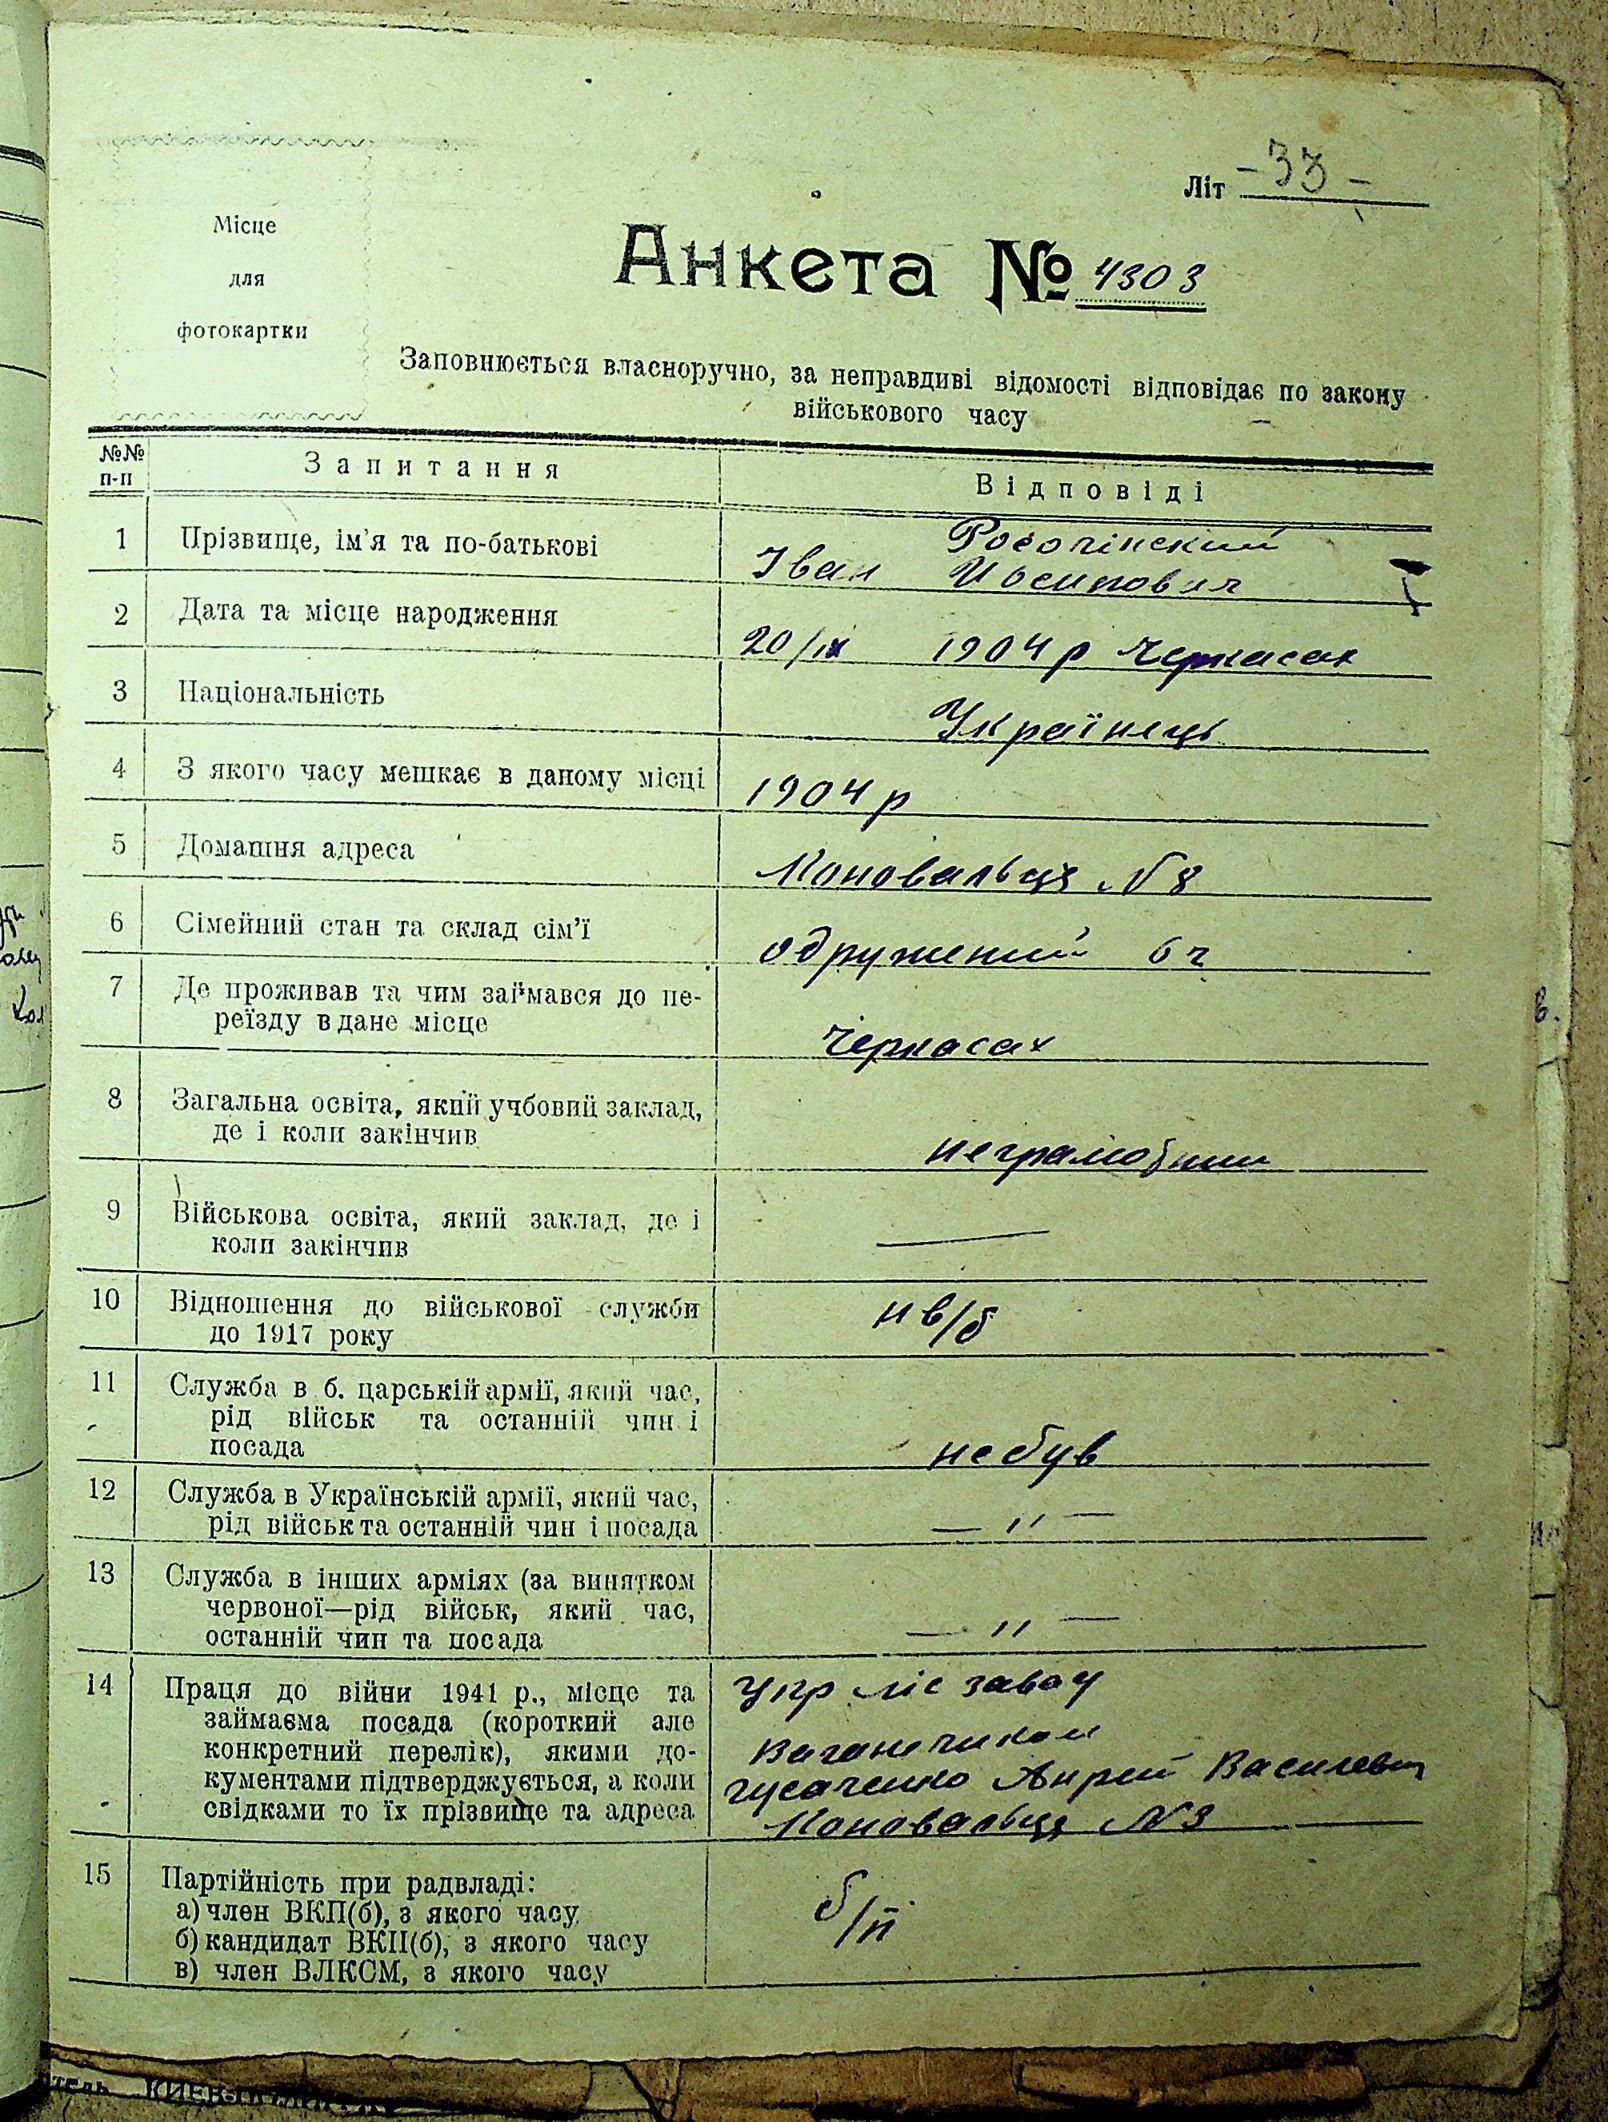 Літ -33-
Місце
для
фотокартки
Анкета № 4303
Заповнюється власноручно, за неправдиві відомості відповідає по закону
військового часу
№№ п-п
Запитання
Відповіді
1 Прізвище, ім'я та по-батькові
Іван Иосипович
2 Дата та місце народження
20/IX 1904 р Черкасах
3 Національність
Українець
4 З якого часу мешкає в даному місці
1904 р
5 Домашня адреса
Коновальця N 8
6 Сімейний стан та склад сім'ї
одружений 6 ч
7 Де проживав та чим займався до пе-
реїзду в дане місце
Черкасах
8 Загальна освіта, який учбовий заклад,
де і коли закінчив
9 Військова освіта, який заклад, де і
коли закінчив
—
10 Відношення до військової служби
до 1917 року
н в/б
11 Служба в б. царській армії, який час,
рід військ та останній чин і
посада
не був
12 Служба в Українській армії, який час,
рід військ та останній чин і посада
— " —
13 Служба в інших арміях (за винятком
червоної—рід військ, який час,
останній чин та посада
— " —
14 Праця до війни 1941 р., місце та
займаєма посада (короткий але
конкретний перелік), якими до-
кументами підтверджується, а коли
свідками то їх прізвище та адреса
Укр ліс завод
Гусаченко Андрей Василевич
Коновальця N 8
15 Партійність при радвладі:
а) член ВКП(б), з якого часу
б) кандидат ВКП(б), з якого часу
в) член ВЛКСМ, з якого часу
б/п